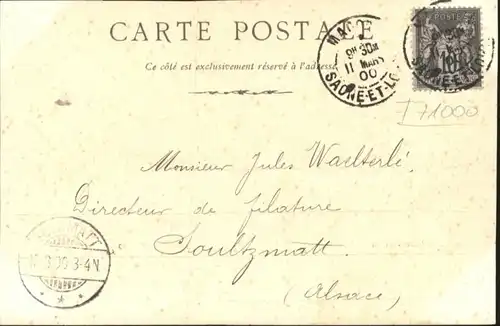 CARTE POSTALE
Ce côté est exclusivement réservé à l'adresse
MACON
9H 30M
11 MARS
00
SAONE-ET-LOIRE
71000
Monsieur Jules Waelterlé.
Directeur de filature
Soultzmatt
(Alsace)
3-4N